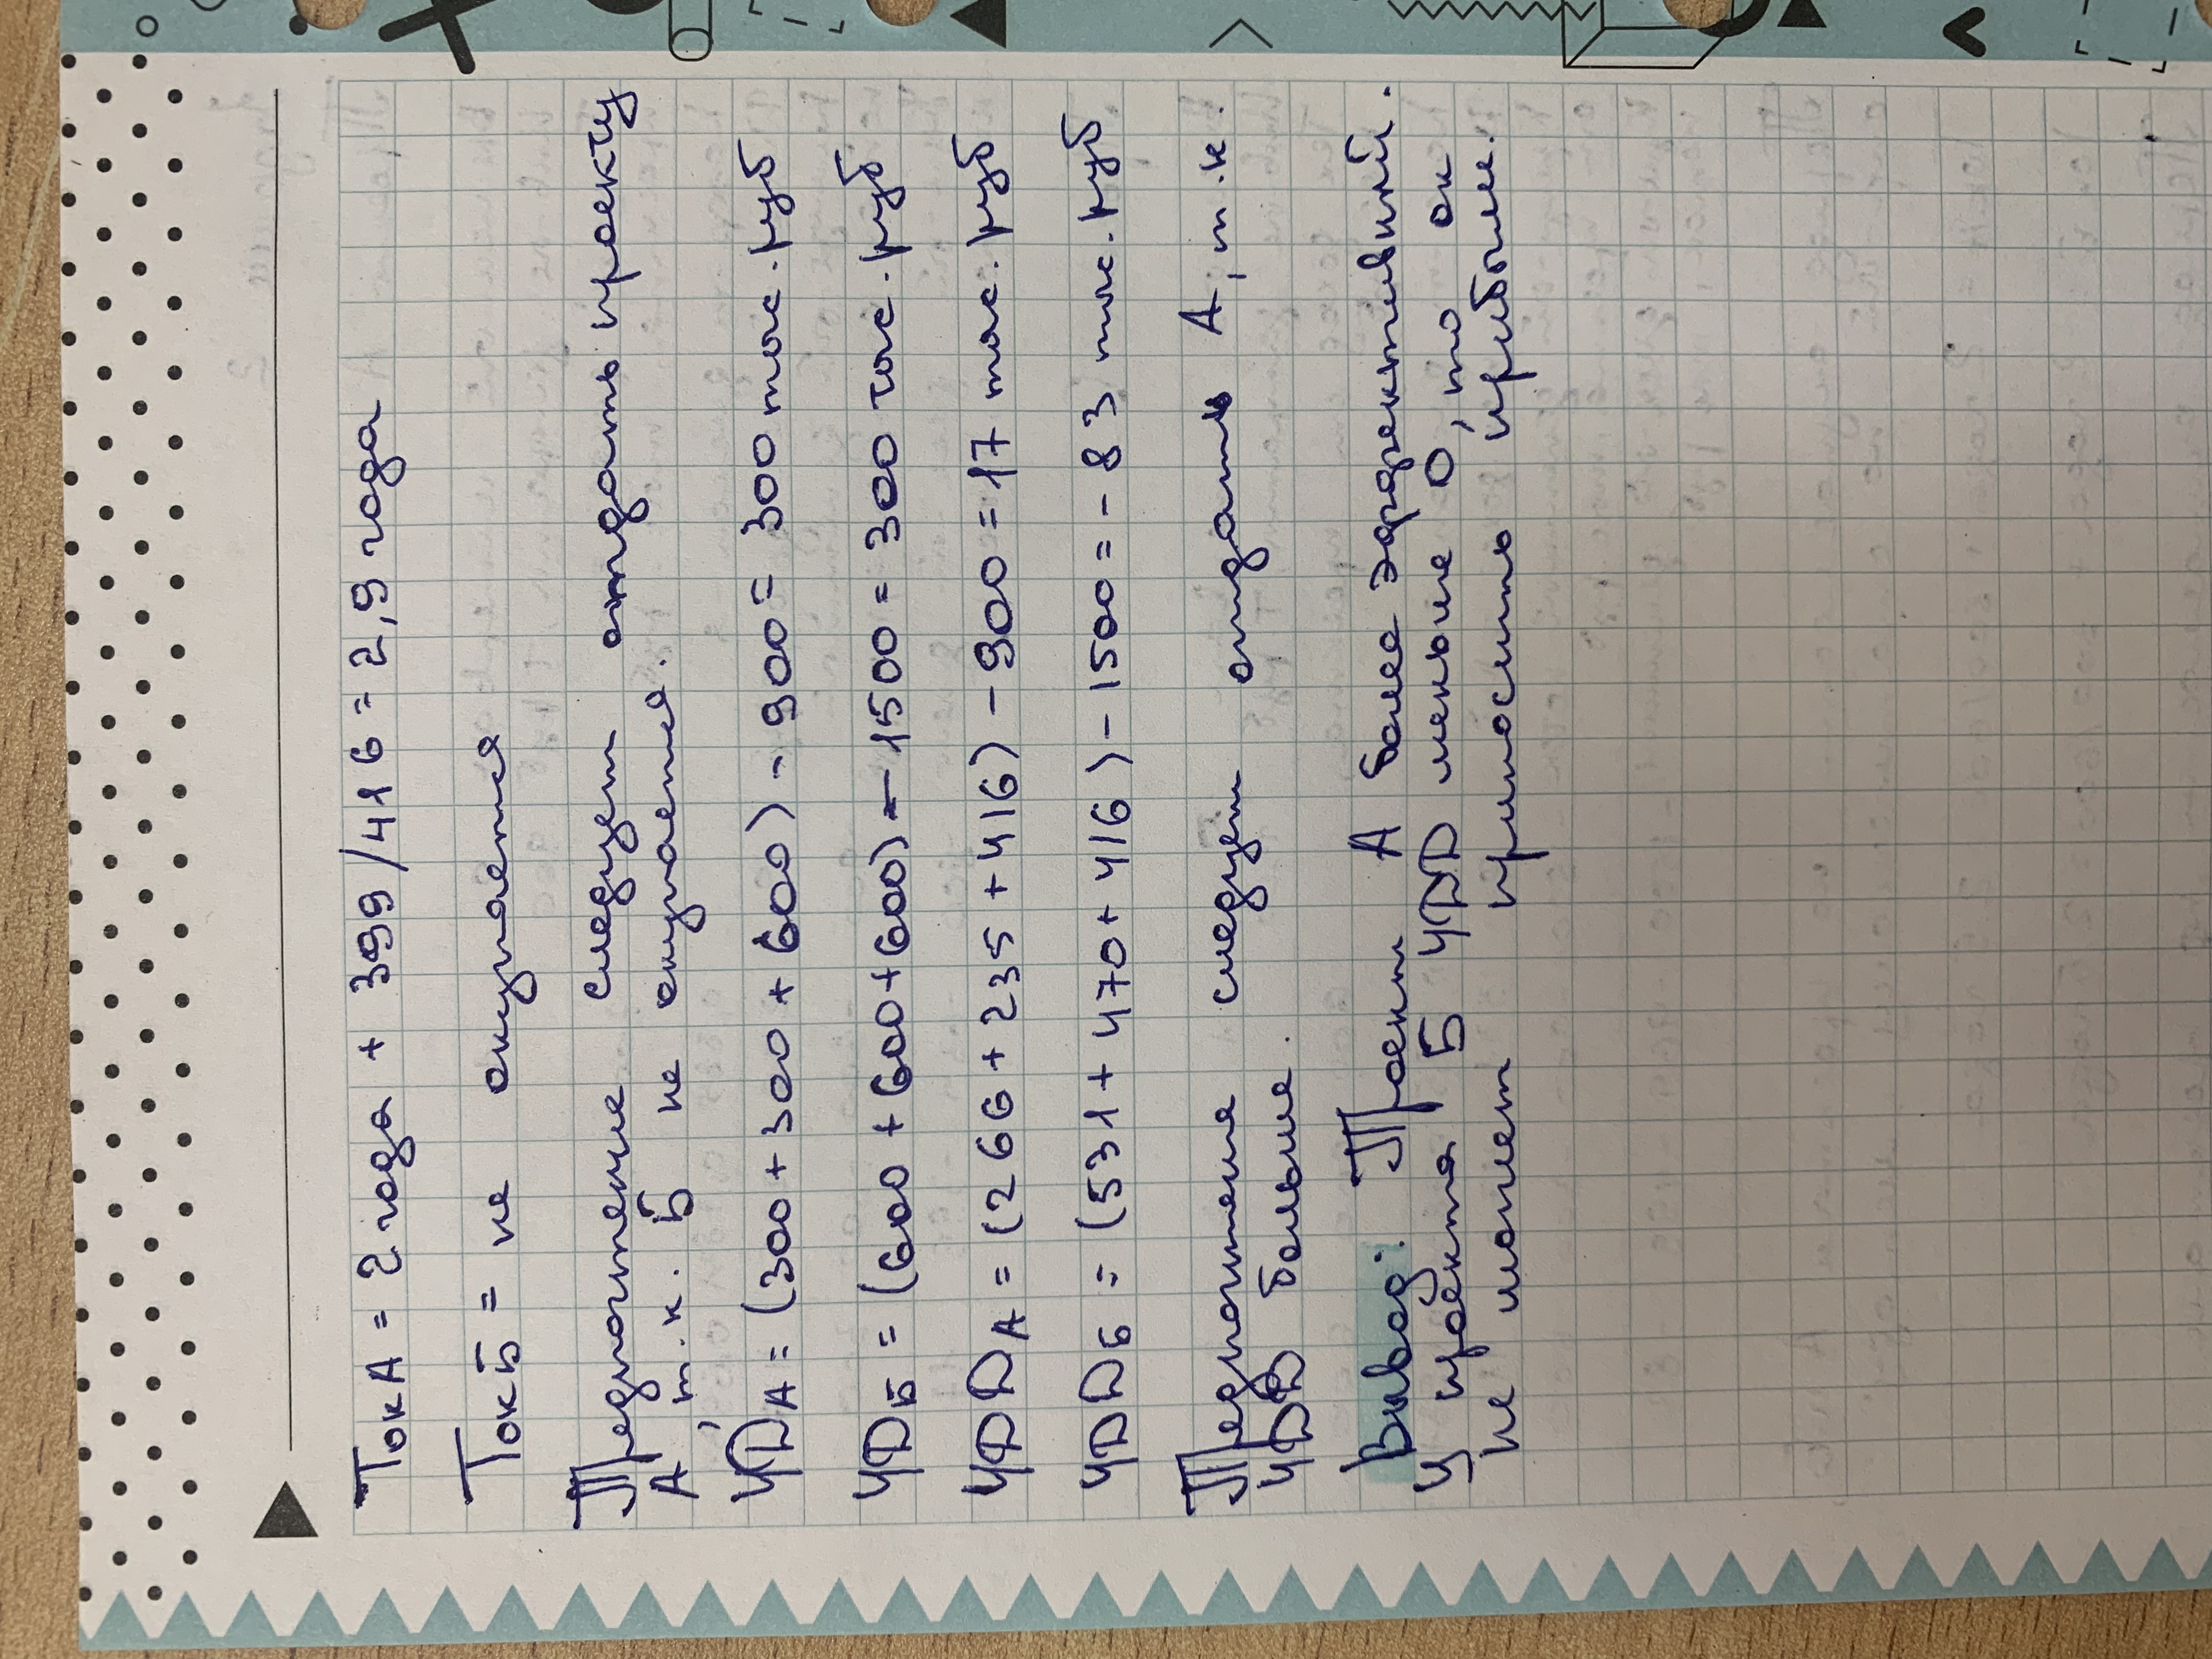 ТокА = 2 года + 399/416 = 2,9 года
ТокБ = не окупается
Предпочтение следует отдать проекту
А, т.к. Б не окупается.
ЧDА = (300+300+600) - 900 = 300 тыс. руб
ЧDБ = (600+600+600) - 1500 = 300 тыс. руб
ЧDDА = (266+235+416) - 900 = 17 тыс. руб
ЧDDБ = (531+470+416) - 1500 = -83 тыс. руб
Предпочтение следует отдать А, т.к.
ЧDD больше.
Вывод: Проект А более эффективный.
У проекта Б ЧDD меньше 0, то он
не может приносить прибыли.